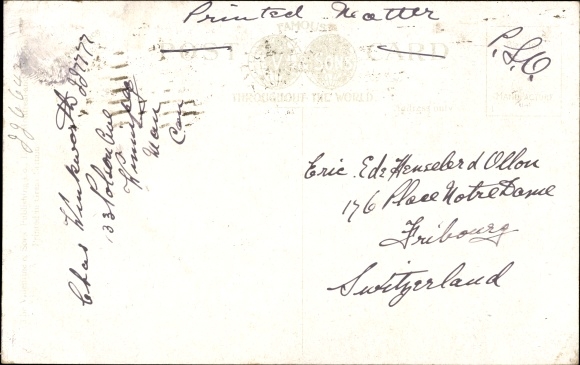 Printed Matter
FAMOUS
POST CARD
THROUGHOUT THE WORLD
P.S.O.
Chas Winkworth 227777
133 Polson Ave
Winnipeg
Man
Can
Eric. Edz Henseler d Ollon
176 Place Notre Dame
Fribourg
Switzerland